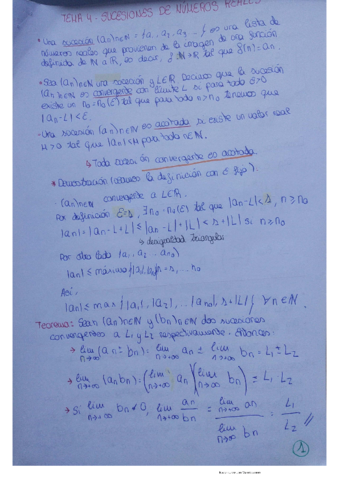 TEMA 4. SUCESIONES DE NÚMEROS REALES
• Una sucesión (an)n∈N = {a1, a2, a3 ... } es una lista de
números reales que provienen de la imagen de una función
definida de N a R, es decir, f: N→R tal que f(n) = an.
• Sea (an)n∈N una sucesión y L∈R. Decimos que la sucesión
(an)n∈N es convergente con límite L si para todo ε>0
existe un n0 = n0(ε) tal que para todo n≥n0 tenemos que
|an-L|<ε.
- Una sucesión (an)n∈N es acotada si existe un valor real
M>0 tal que |an|≤M para todo n∈N.
* Toda sucesión convergente es acotada.
• Demostración (usamos la definición con ε fijo):
(an)n∈N convergente a L∈R.
Por definición ε=1, ∃ n0 = n0(ε) tal que |an-L|<1, n≥n0
|an| = |an-L+L| ≤ |an-L| + |L| < 1+|L| si n≥n0
→ desigualdad triangular
Por otro lado (a1, a2 ... an0)
Así,
|an| ≤ max {|a1|, |a2|, ... |an0|, 1+|L|} ∀n∈N
Teorema: Sean (an)n∈N y (bn)n∈N dos sucesiones
convergentes a L1 y L2 respectivamente. Entonces:
→ lim n→∞ (an ± bn) = lim n→∞ an ± lim n→∞ bn = L1 ± L2
→ lim n→∞ (an bn) = (lim n→∞ an)(lim n→∞ bn) = L1 L2
→ Si lim n→∞ bn ≠ 0, lim n→∞ an/bn = lim n→∞ an / lim n→∞ bn = L1/L2
1